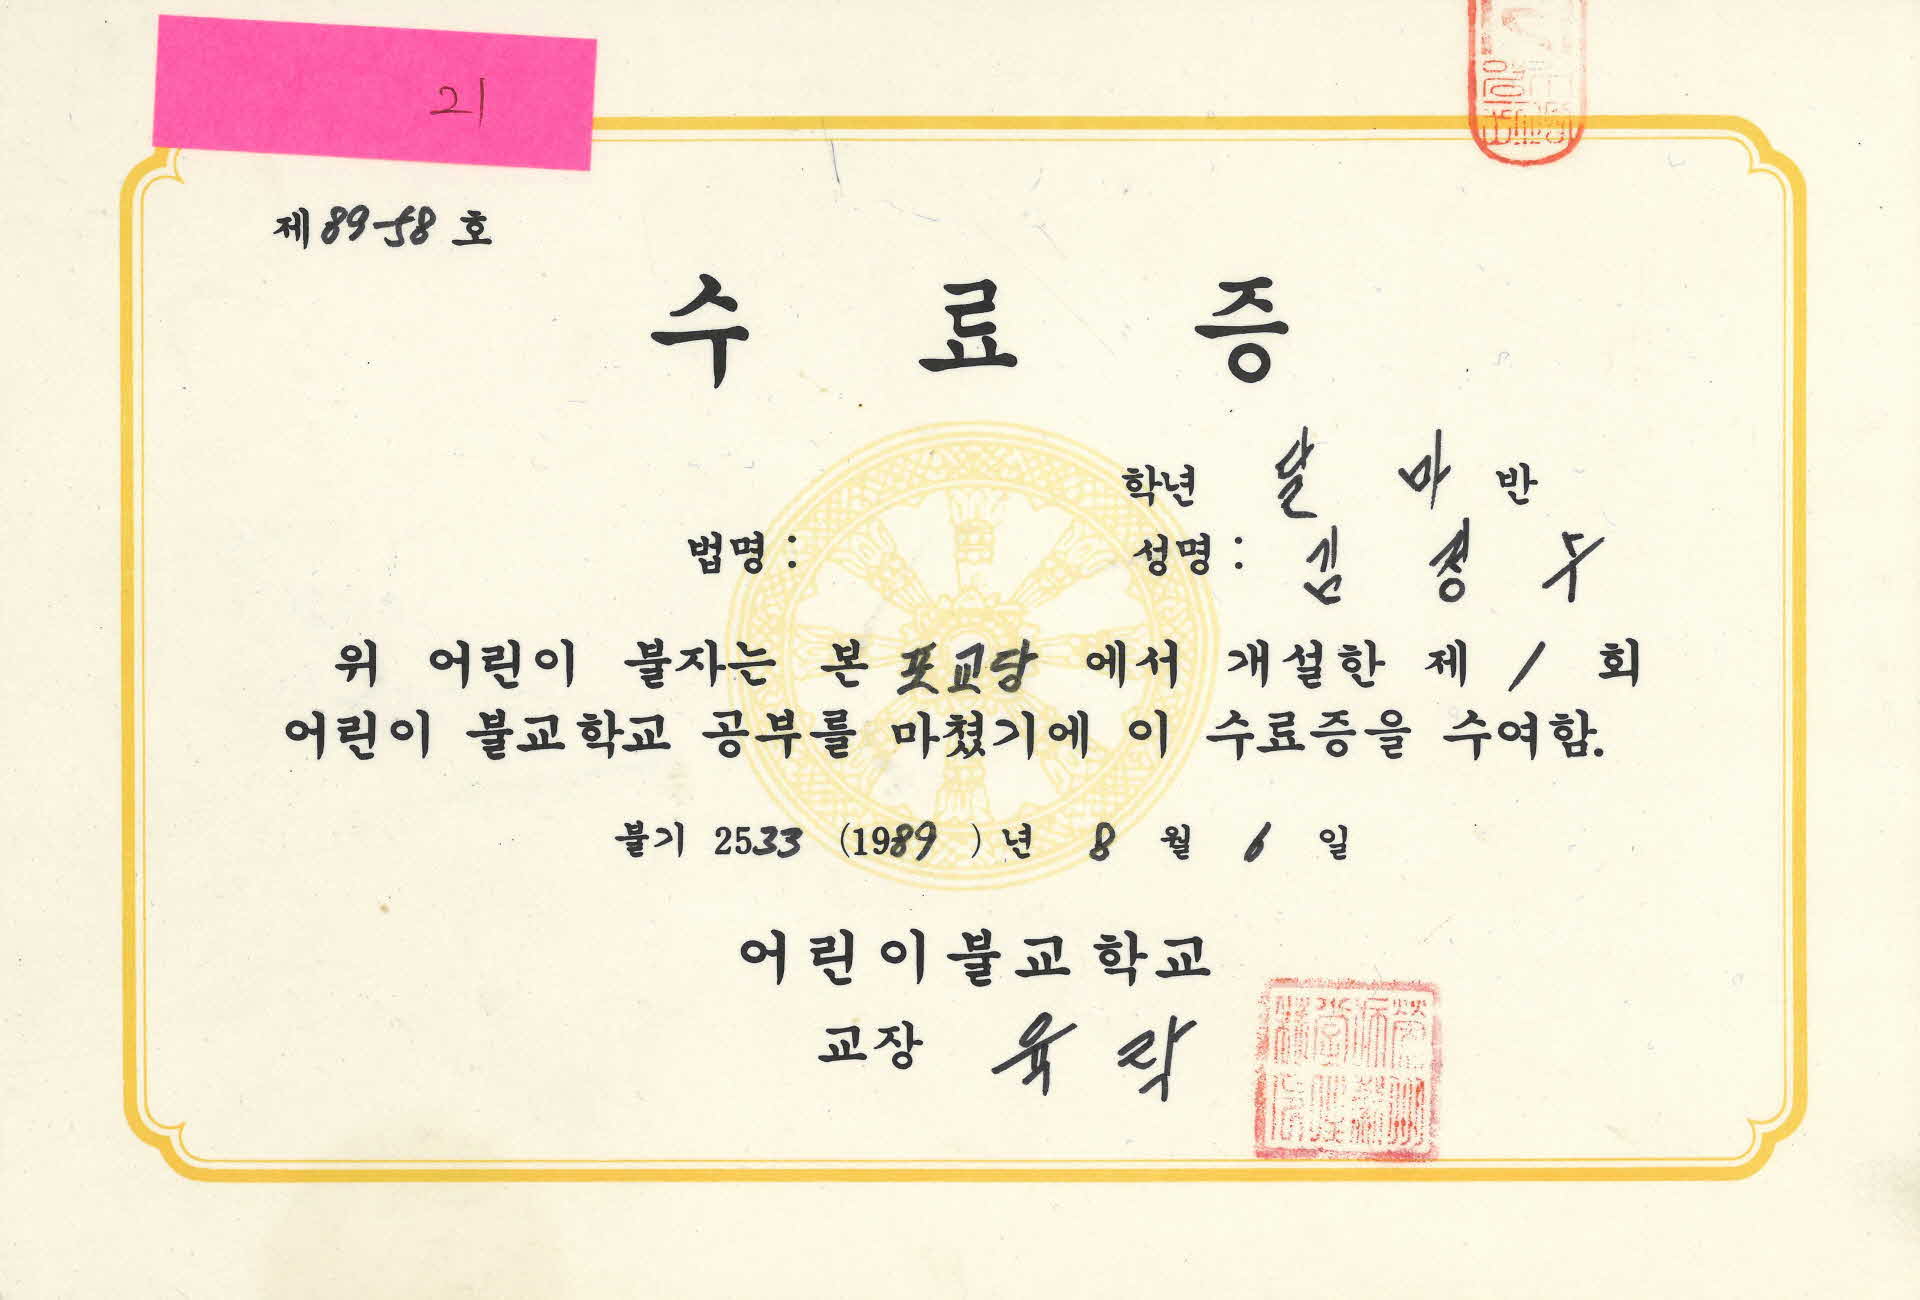 21
제 89-58 호
수 료 증
학년 달 마 반
법명 : 성명 : 김 정 수
위 어린이 불자는 본 포교당 에서 개설한 제 1 회
어린이 불교학교 공부를 마쳤기에 이 수료증을 수여함.
불기 2533 (1989 ) 년 8 월 6 일
어린이불교학교
교장